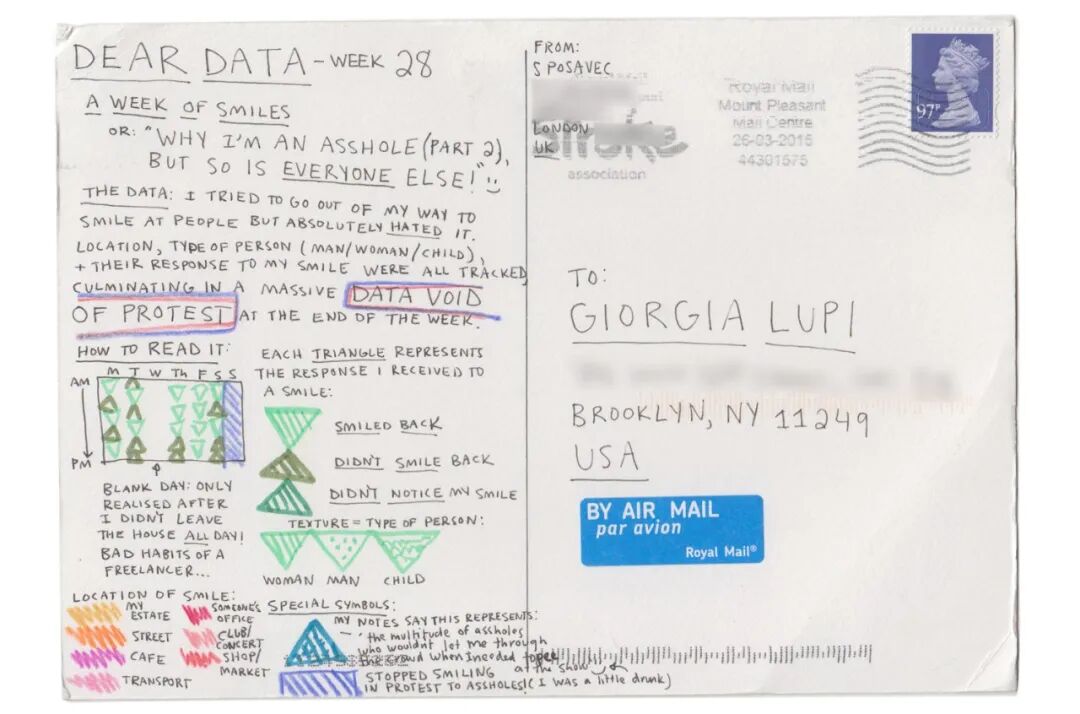 DEAR DATA - WEEK 28
A WEEK OF SMILES
OR: "WHY I'M AN ASSHOLE (PART 2),
BUT SO IS EVERYONE ELSE!"
THE DATA: I TRIED TO GO OUT OF MY WAY TO
SMILE AT PEOPLE BUT ABSOLUTELY HATED IT.
LOCATION, TYPE OF PERSON (MAN/WOMAN/CHILD),
+ THEIR RESPONSE TO MY SMILE WERE ALL TRACKED
CULMINATING IN A MASSIVE DATA VOID
OF PROTEST AT THE END OF THE WEEK.
HOW TO READ IT:
M T W Th F S S
AM
PM
BLANK DAY: ONLY
REALISED AFTER
I DIDN'T LEAVE
THE HOUSE ALL DAY!
BAD HABITS OF A
FREELANCER...
EACH TRIANGLE REPRESENTS
THE RESPONSE I RECEIVED TO
A SMILE:
SMILED BACK
DIDN'T SMILE BACK
DIDN'T NOTICE MY SMILE
TEXTURE = TYPE OF PERSON:
WOMAN MAN CHILD
LOCATION OF SMILE:
MY
ESTATE
STREET
CAFE
TRANSPORT
SOMEONE'S
OFFICE
CLUB/
CONCERT
SHOP/
MARKET
SPECIAL SYMBOLS:
MY NOTES SAY THIS REPRESENTS:
'the multitude of assholes
who wouldn't let me through
the crowd when I needed to pee
at the show'
(I was a little drunk)
STOPPED SMILING
IN PROTEST TO ASSHOLES!
FROM:
S POSAVEC
LONDON
UK
association
Royal Mail
Mount Pleasant
Mail Centre
26-03-2015
44301575
97P
TO:
GIORGIA LUPI
BROOKLYN, NY 11249
USA
BY AIR MAIL
par avion
Royal Mail®